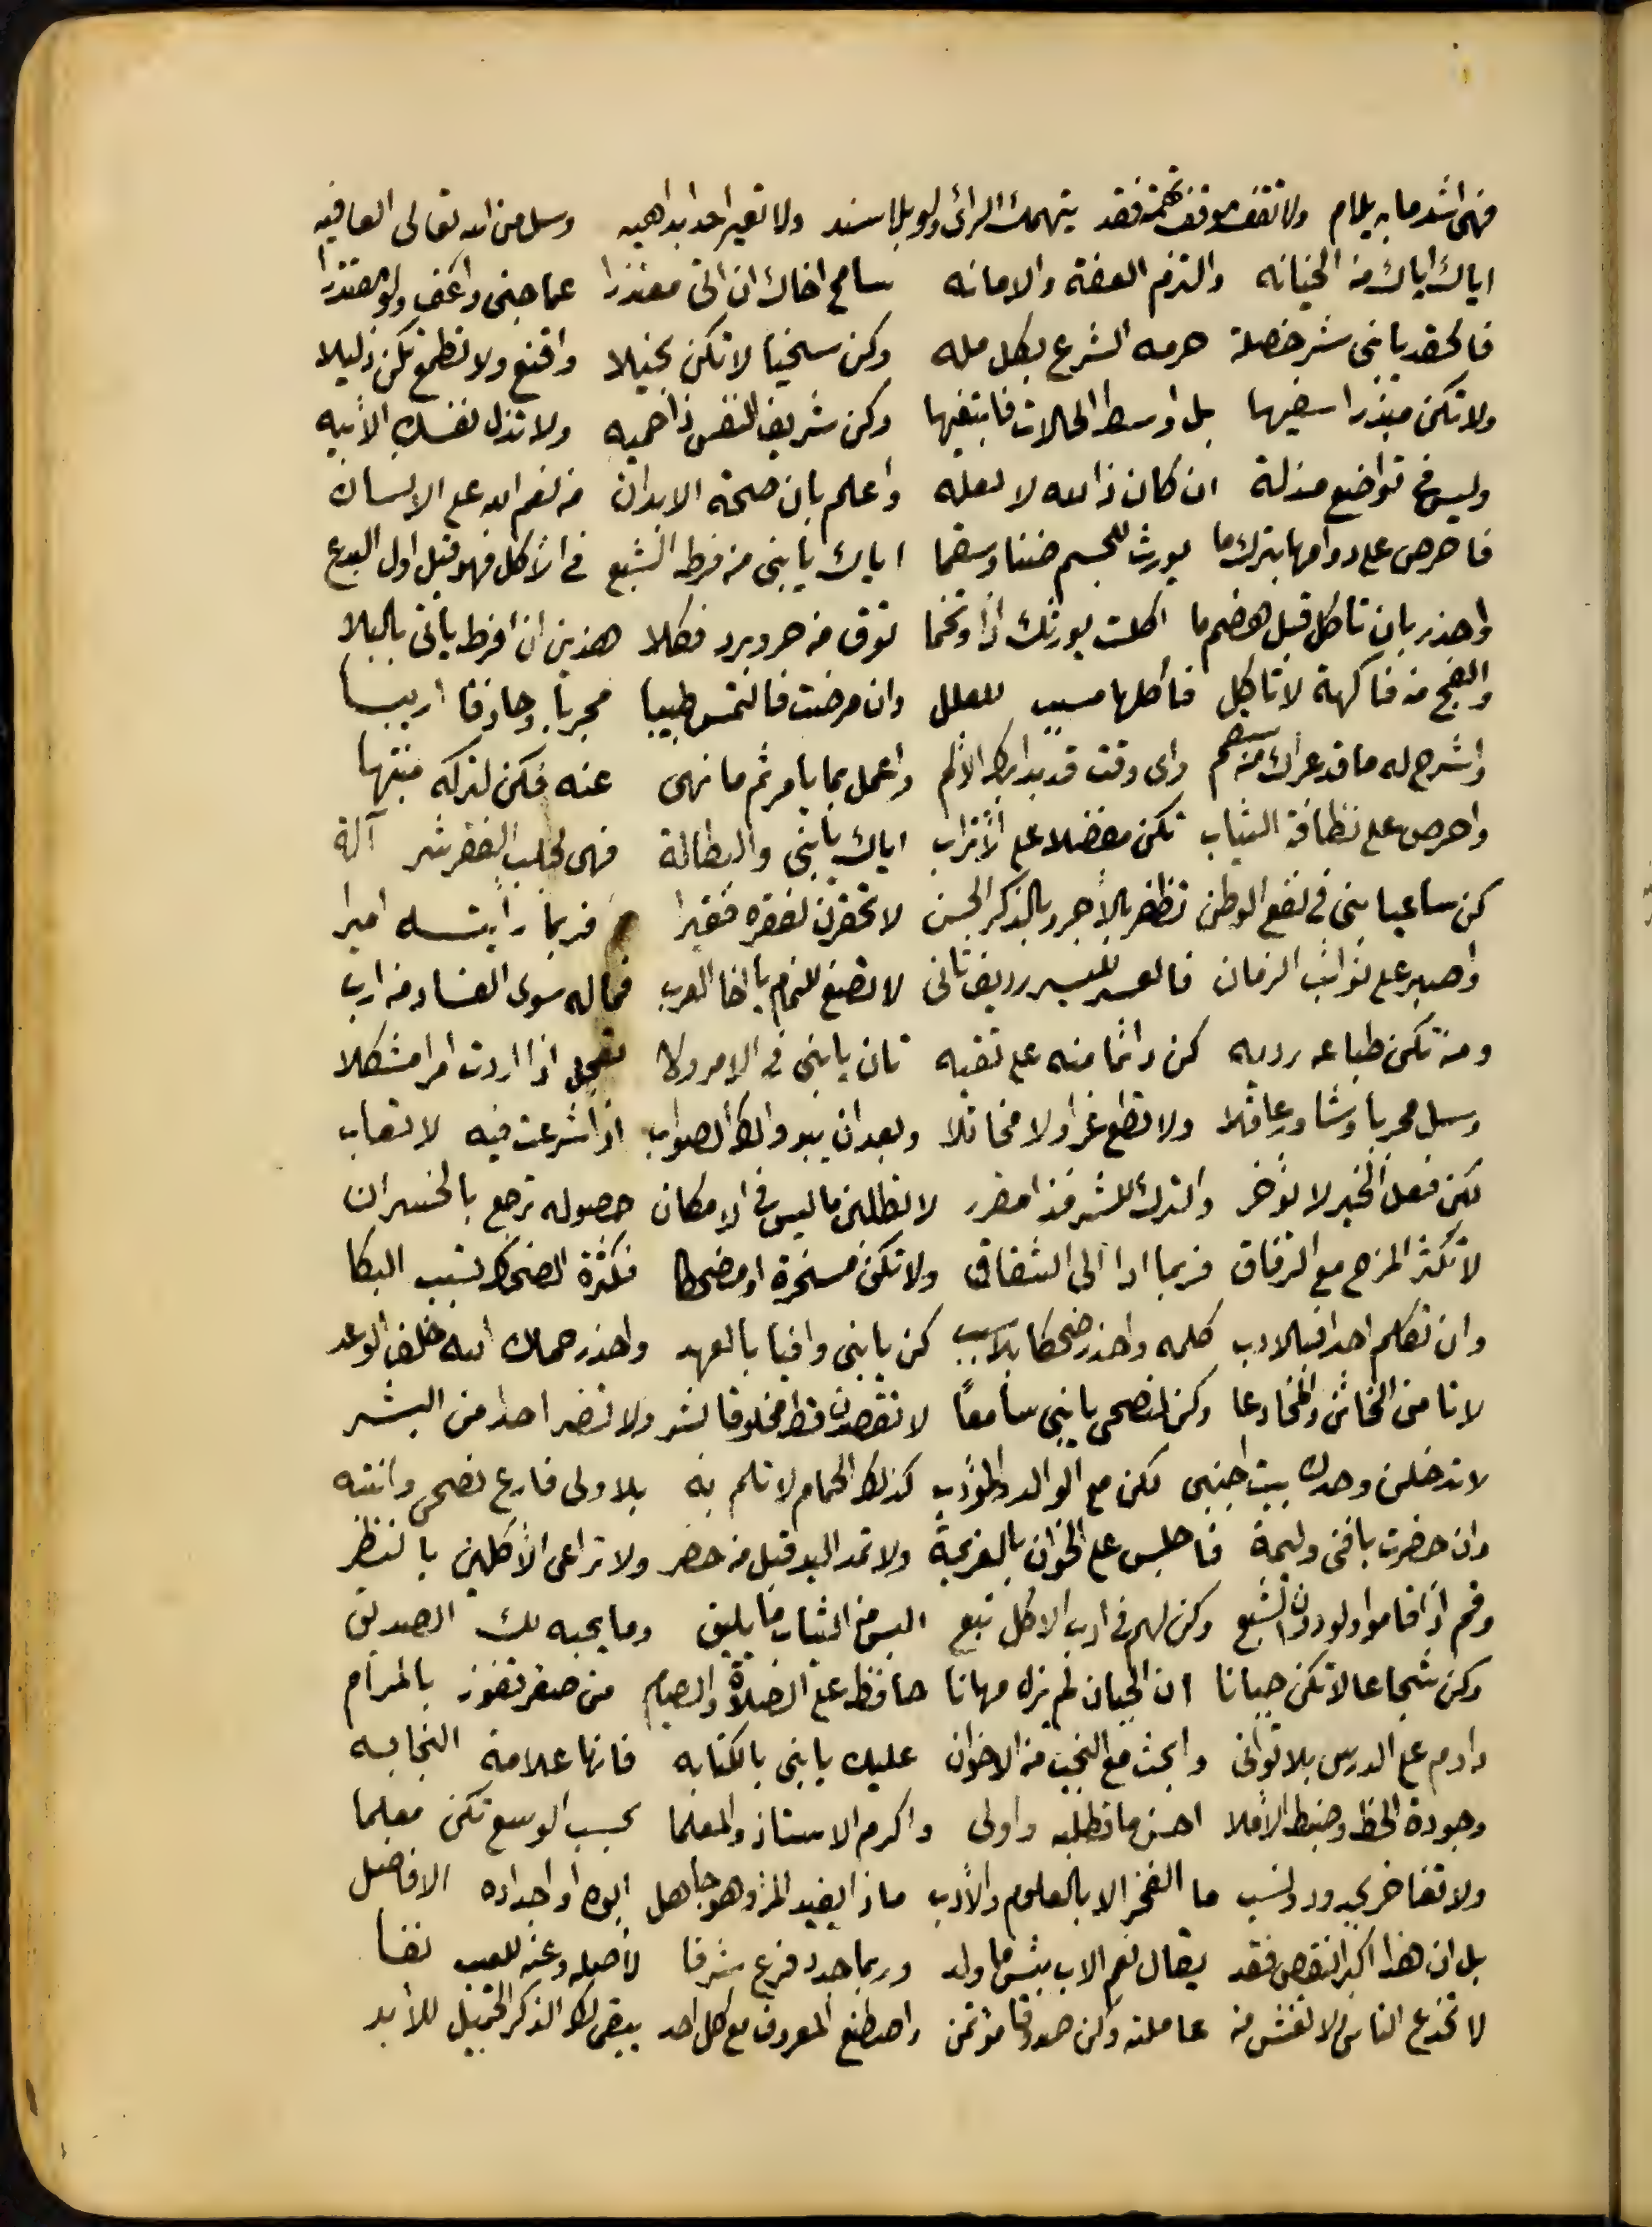 فهى اشد ما به يلام ولا تقف موقف تهمة فقد يتهمك الرائ ولو بلا سند ولا تعير احدا بداهيه وسل من الله تعالى العافيه
اياك اياك من الخيانه والتزم العفة والامانه سامح اخاك ان اتى معتذرا عما جنى واعف ولو مقتدرا
فالحقد يا بنى شر خصلة حرمه الشرع بكل مله وكن سخيا لا تكن بخيلا واقنع ولا تطمع تكن ذليلا
ولا تكن مبذرا سفيها بل اوسط الحالات فابتغيها وكن شريف النفس ذا حميه ولا تذل نفسك الابيه
وليس فى تواضع مذلة ان كان ذا لله لا لعله واعلم بان صحة الابدان من نعم الله على الانسان
فاحرص على دوامها بترك ما يورث للجسم ضنا وسقما اياك يا بنى من فرط الشبع فى الأكل فهو قيل اول البدع
واحذر بان تاكل قبل هضم ما اكلت يورثك اذا وتخما توق من حر وبرد فكلا هذين ان افرط يأتى بالبلا
والفج من فاكهة لا تاكل فأكلها مسبب للعلل وان مرضت فالتمس طبيبا مجربا وحاذقا اريبا
واشرح له ما قد عراك من سقم واى وقت قد بدا بك الألم واعمل بما يامر ثم ما نهى عنه فكن لتركه منتها
واحرص على نظافة الثياب تكن مفضلا على الأتراب اياك يا بنى والبطالة فهى لجلب الفقر شر آلة
كن ساعيا بنى فى نفع الوطن تظفر بالأجر وبالذكر الحسن لا تحقرن لفقره فقيرا فربما رأيته اميرا
واصبر على نوائب الزمان فالعسر لليسر رديف ثانى لا تصغ للنمام يا اخا العرب فما له سوى الفساد من ارب
ومن تكن طباعه رديه كن دائما منه على تقيه تان يا بنى فى الامر ولا تعجل اذا اردت امرا مشكلا
وسل مجربا وشاور عاقلا ولا تطع غرا ولا مخاتلا وبعد ان يبدو لك الصواب اذا شرعت فيه لا تعاب
لكن فعل الخير لا تؤخر والترك للشر فذا مقرر لا تطلبن ما ليس فى الامكان حصوله ترجع بالخسران
لا تكثر المزح مع الرفاق فربما ادا الى الشقاق ولا تكن مسخرة او مضحكا فكثرة الضحك تسبب البكا
وان تكلم احدا فبالادب كلمه واحذر ضحكا بلا سبب كن يا بنى وافيا بالعهد واحذر حماك الله خلف الوعد
لا تامن الخائن والمخادعا وكن لنصحى يا بنى سامعاً لا تقصدن قط مخلوقا بشر ولا تضر احدا من البشر
لا تدخلن وحدك بيت اجنبى لكن مع الوالد والمؤدب كذلك الحمام لا تلم به بلا ولى فارع نصحى وانتبه
وان حضرت يا فتى وليمة فاجلس على الخوان بالعزيمة ولا تمد اليد قبل من حضر ولا تراعى الآكلين بالنظر
وقم اذا قاموا ولو دون الشبع وكن لهم فى ادب الاكل تبع البس من الثياب ما يليق وما يحبه لك الصديق
وكن شجاعا لا تكن جبانا ان الجبان لم يزل مهانا حافظ على الصلاة والصيام من صغر تفوز بالمرام
داوم على الدرس بلا توانى وابحث مع النجب من الاخوان عليك يا بنى بالكتابه فانها علامة النجابه
وجودة الخط وضبط الأملا احسن ما تطلبه واولى واكرم الاستاذ والمعلما بحسب الوسع تكن معلما
ولا تفاخر بجدود ونسب ما الفخر الا بالعلوم والأدب ماذا يفيد المرؤ وهو جاهل ابوه او اجداده الافاضل
بل ان هذا اكبر النقص فقد يقال نعم الاب بئس ما ولد وربما جدد فرع شرفا لأصله وعنه للعيب نفا
لا تخدع الناس لا تغش من عاملته وكن صدوقا مؤتمن واصطنع المعروف مع كل احد يبقى لك الذكر الجميل للأبد